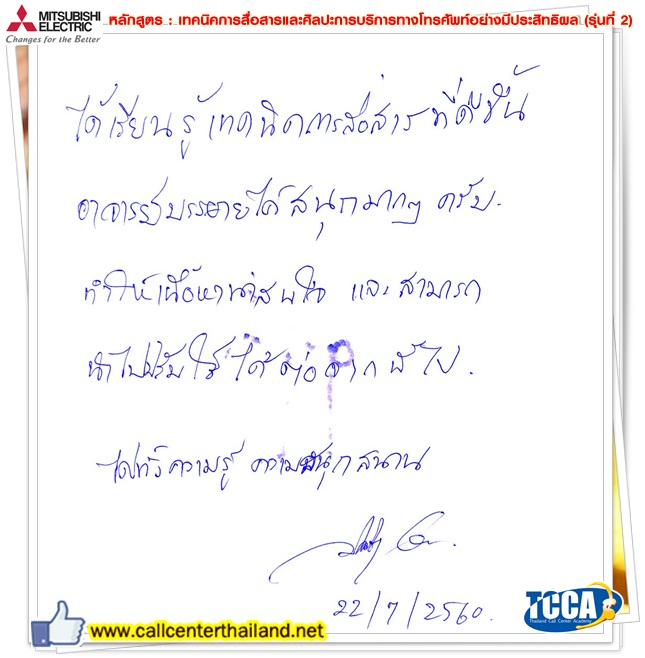 MITSUBISHI ELECTRIC
Changes for the Better
หลักสูตร : เทคนิคการสื่อสารและศิลปะการบริการทางโทรศัพท์อย่างมีประสิทธิผล (รุ่นที่ 2)
ได้เรียนรู้เทคนิคการสื่อสารที่ดีขึ้น
อาจารย์บรรยายได้สนุกมากๆ ครับ.
ทำให้เนื้อหาน่าสนใจ และสามารถ
นำไปปรับใช้ได้ต่อจากนี้ไป.
ได้ทั้งความรู้ ความสนุกสนาน
22/7/2560.
www.callcenterthailand.net
TCCA
Thailand Call Center Academy